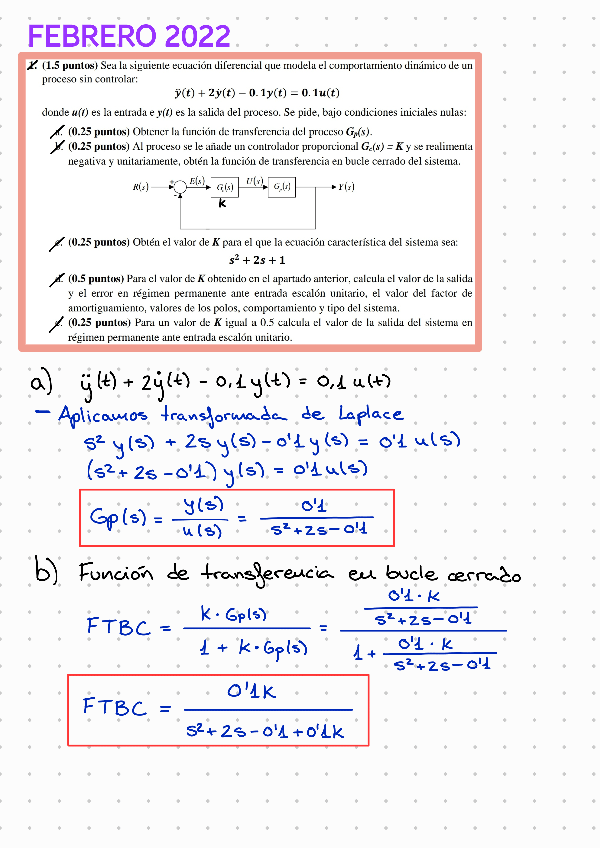 FEBRERO 2022
1. (1.5 puntos) Sea la siguiente ecuación diferencial que modela el comportamiento dinámico de un
proceso sin controlar:
ÿ(t) + 2ẏ(t) − 0.1y(t) = 0.1u(t)
donde u(t) es la entrada e y(t) es la salida del proceso. Se pide, bajo condiciones iniciales nulas:
a. (0.25 puntos) Obtener la función de transferencia del proceso Gp(s).
b. (0.25 puntos) Al proceso se le añade un controlador proporcional Gc(s) = K y se realimenta
negativa y unitariamente, obtén la función de transferencia en bucle cerrado del sistema.
R(s) + - E(s) Gc(s) U(s) Gp(s) Y(s)
K
c. (0.25 puntos) Obtén el valor de K para el que la ecuación característica del sistema sea:
s² + 2s + 1
d. (0.5 puntos) Para el valor de K obtenido en el apartado anterior, calcula el valor de la salida
y el error en régimen permanente ante entrada escalón unitario, el valor del factor de
amortiguamiento, valores de los polos, comportamiento y tipo del sistema.
e. (0.25 puntos) Para un valor de K igual a 0.5 calcula el valor de la salida del sistema en
régimen permanente ante entrada escalón unitario.
a) ÿ(t) + 2ẏ(t) − 0,1y(t) = 0,1 u(t)
− Aplicamos transformada de Laplace
s² y(s) + 2s y(s) − 0'1 y(s) = 0'1 u(s)
(s² + 2s − 0'1) y(s) = 0'1 u(s)
Gp(s) = y(s)/u(s) = 0'1/(s²+2s−0'1)
b) Función de transferencia en bucle cerrado
FTBC = K·Gp(s)/(1 + K·Gp(s)) = (0'1·K/(s²+2s−0'1))/(1 + 0'1·K/(s²+2s−0'1))
FTBC = 0'1K/(s²+2s−0'1+0'1K)